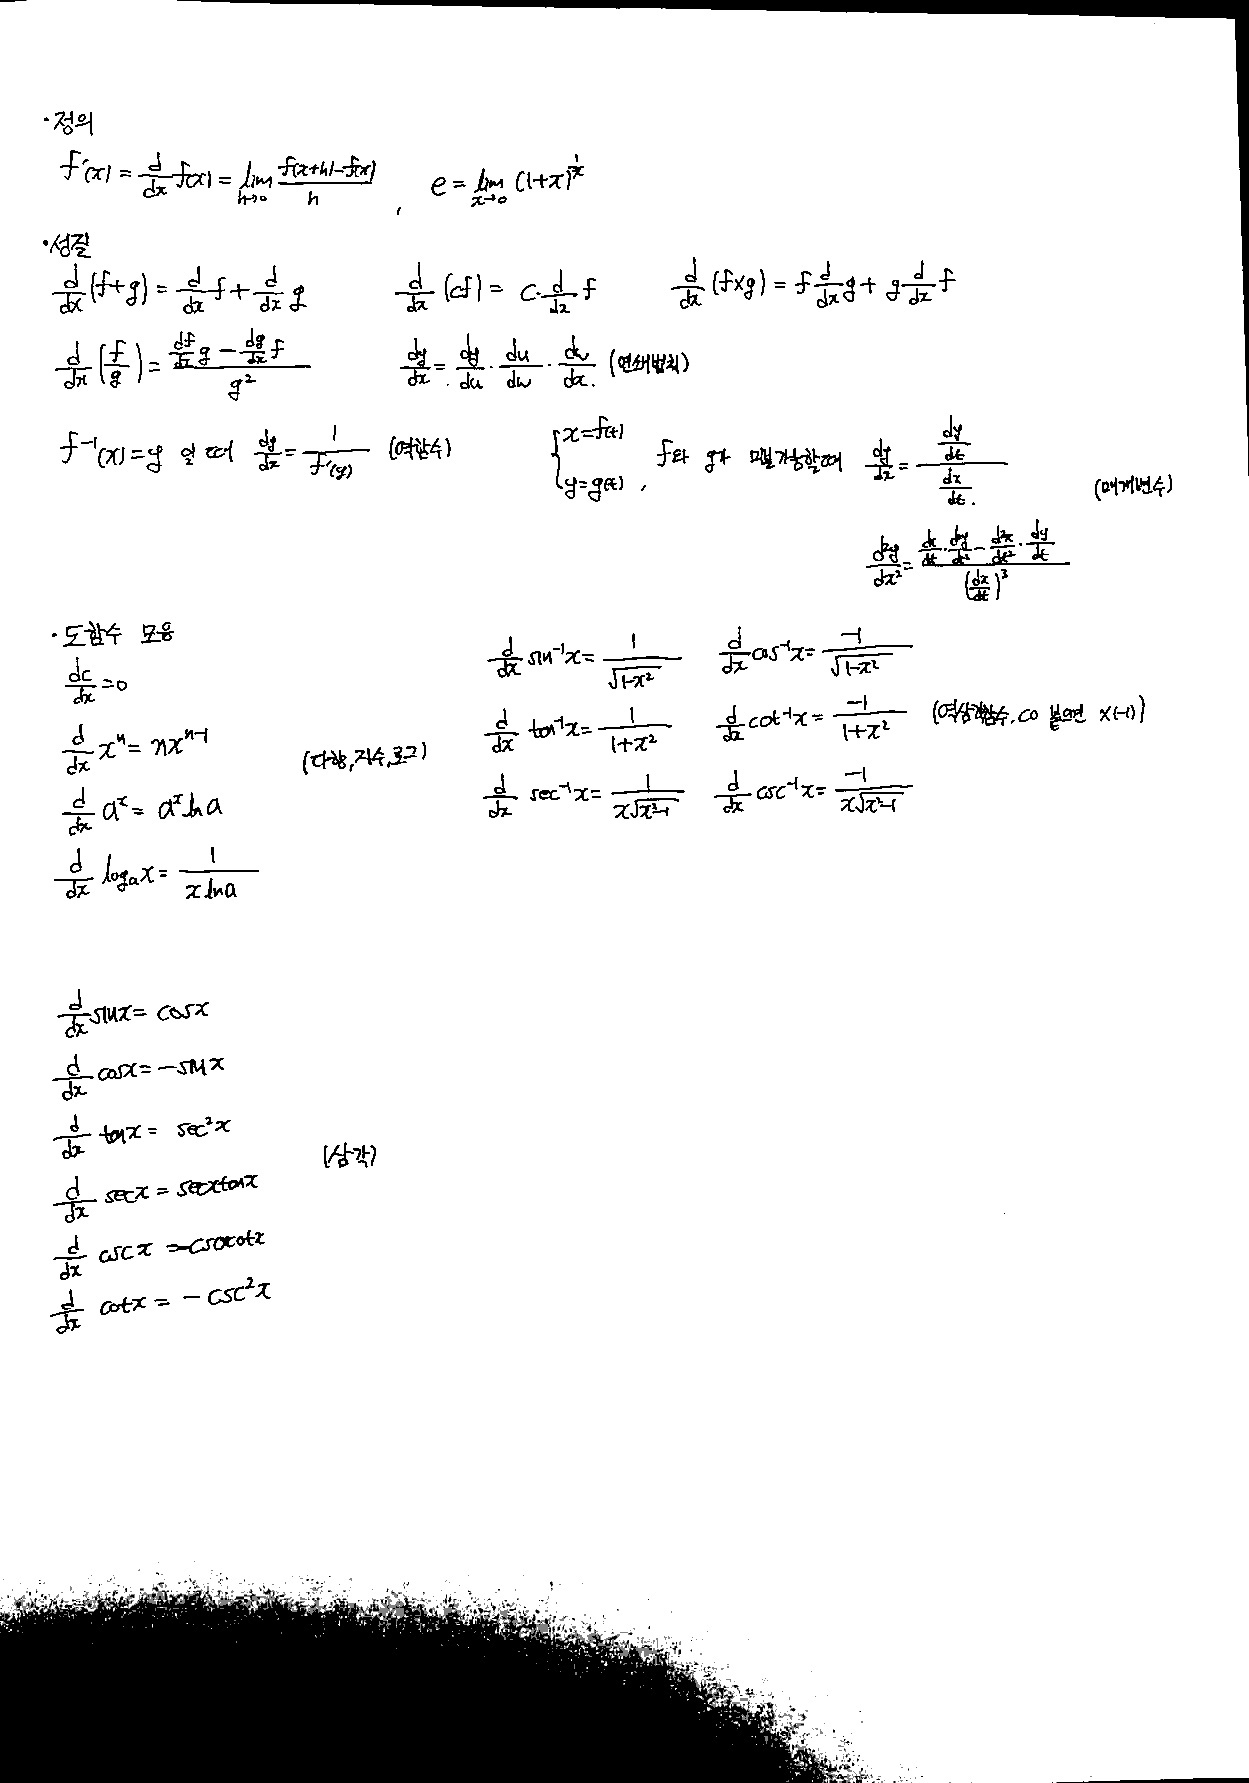 ·정의
f'(x) = d/dx f(x) = lim h→0 (f(x+h)-f(x))/h , e = lim x→0 (1+x)^(1/x)
·성질
d/dx (f+g) = d/dx f + d/dx g d/dx (cf) = c·d/dx f d/dx (f×g) = f d/dx g + g d/dx f
d/dx (f/g) = (df/dx g - dg/dx f)/g² dy/dx = dy/du · du/dw · dw/dx (연쇄법칙)
f⁻¹(x) = y 일 때 dy/dx = 1/f'(y) (역함수) { x=f(t) y=g(t) , f와 g가 미분가능할때 dy/dx = (dy/dt)/(dx/dt) (매개변수)
d²y/dx² = (dx/dt · d²y/dt² - d²x/dt² · dy/dt)/(dx/dt)³
·도함수 모음
dc/dx = 0
d/dx xⁿ = nxⁿ⁻¹ (다항,지수,로그)
d/dx aˣ = aˣ ln a
d/dx logₐx = 1/(x ln a)
d/dx sin⁻¹x = 1/√(1-x²) d/dx cos⁻¹x = -1/√(1-x²)
d/dx tan⁻¹x = 1/(1+x²) d/dx cot⁻¹x = -1/(1+x²) (역삼각함수, co 붙으면 x(-1))
d/dx sec⁻¹x = 1/(x√(x²-1)) d/dx csc⁻¹x = -1/(x√(x²-1))
d/dx sinx = cosx
d/dx cosx = -sinx
d/dx tanx = sec²x
(삼각)
d/dx secx = secxtanx
d/dx cscx = -cscxcotx
d/dx cotx = -csc²x